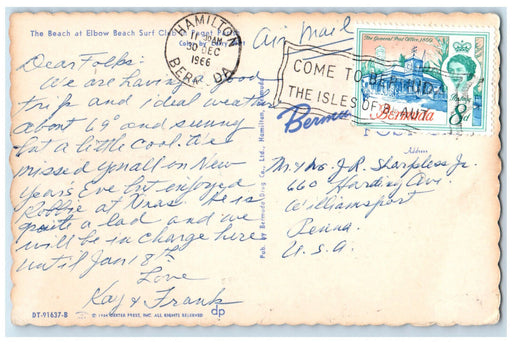 The Beach at Elbow Beach Surf Club Paget
Color by
Air Mail
HAMILTON
11 30AM
30 DEC
1966
BERMUDA
COME TO BERMUDA
THE ISLES OF BEAUTY
The General Post Office, 1860
Bermuda
8d
Bermuda
Address
Dear Folks:
We are having a good
trip and ideal weather
about 69° and sunny
but a little cool. We
missed you all on New
Year's Eve but enjoyed
Robbie at Xmas. He is
quite a lad and we
will be in charge here
until Jan 8th.
Love
Kay & Frank
Pub. by Bermuda Drug Co., Ltd., Hamilton, Bermuda
Mr & Mrs. J.R. Sharpless Jr.
660 Harding Ave.
Williamsport
Penna.
U.S.A.
DT-91637-B
© 1964 DEXTER PRESS, INC. ALL RIGHTS RESERVED
dp